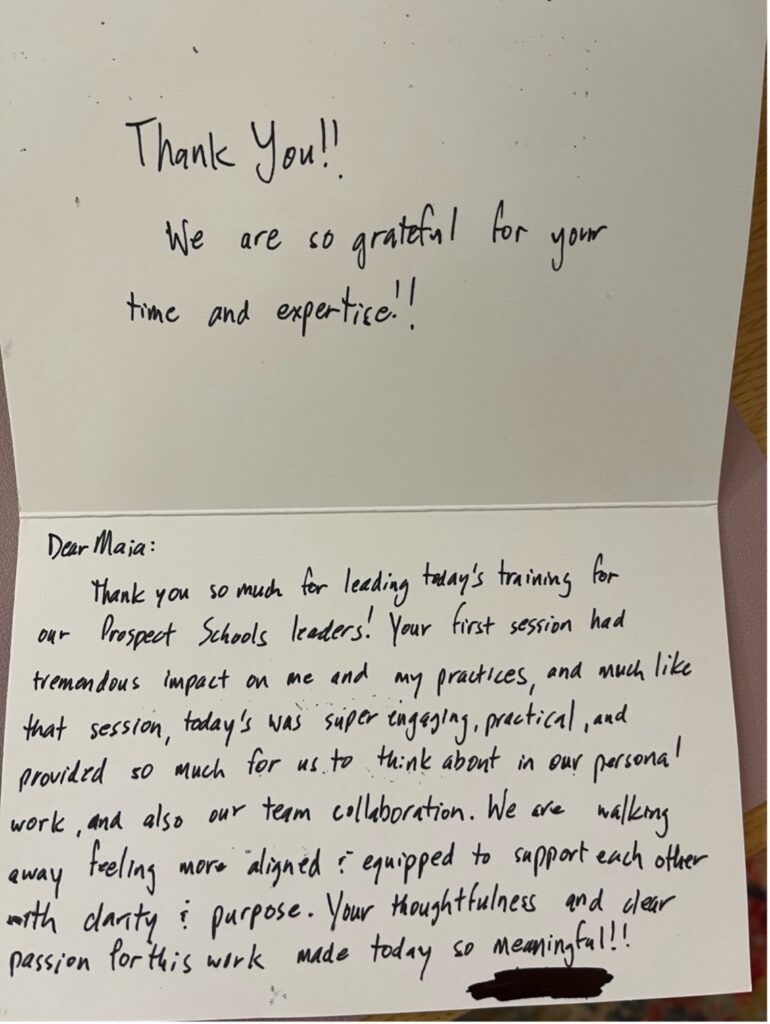 Thank You!!
We are so grateful for your
time and expertise!!
Dear Maia:
Thank you so much for leading today's training for
our Prospect Schools leaders! Your first session had
tremendous impact on me and my practices, and much like
that session, today's was super engaging, practical, and
provided so much for us to think about in our personal
work, and also our team collaboration. We are walking
away feeling more aligned & equipped to support each other
with clarity & purpose. Your thoughtfulness and clear
passion for this work made today so meaningful!!